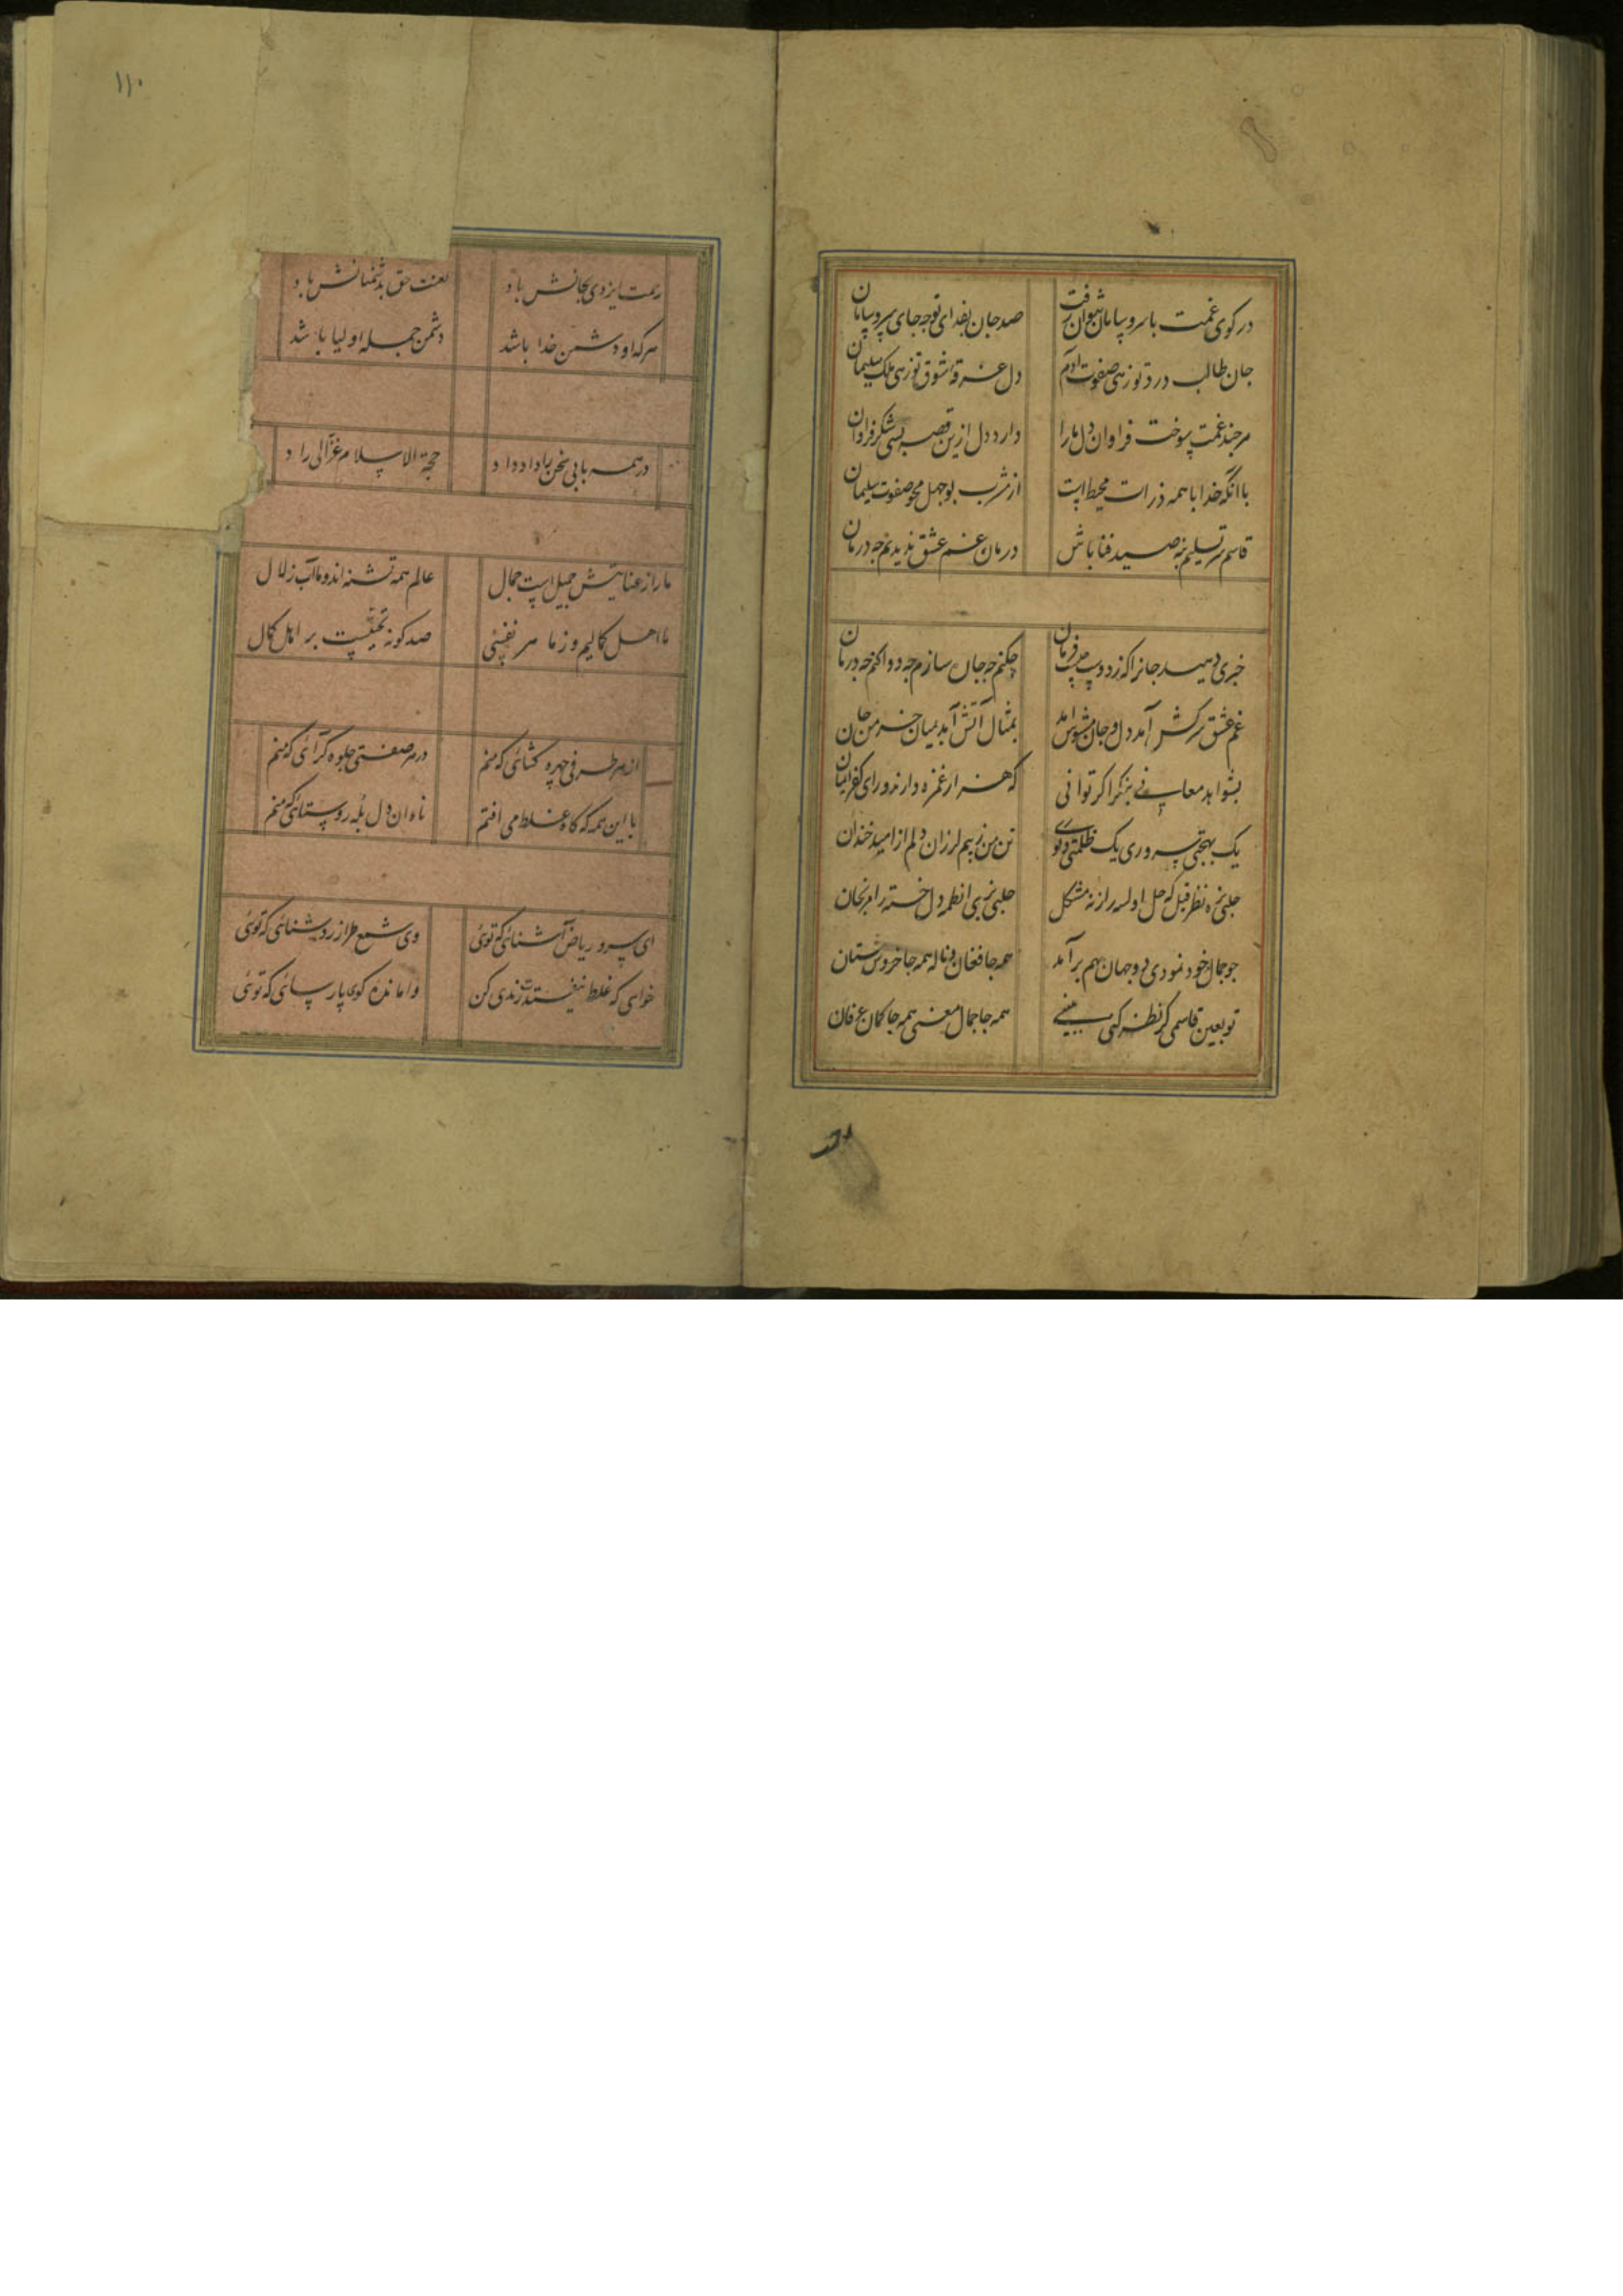 در کوی غمت با سر و سامان نتوان رفت صد جان بفدای تو چه جای سر و سامان
جان طالب درد تو زهی صفوت آدم دل غرقه شوق تو زهی ملک سلیمان
هرچند غمت سوخت فراوان دل ما را دارد دل ازین قصه بسی شکر فراوان
با آنکه خدا با همه ذرات محیط است از مشرب بوجهل صفوت سلیمان
قاسم سر تسلیم بنه صید فنا باش درمان غم عشق ندیدیم چه درمان
خبری دهید جانرا که ز دوست چیست فرمان چکنم چه جان سازم چه دوا کنم چه درمان
غم عشق سرکش آمد دل و جان مشوش آمد بمثال آتش آمد بمیان خرمن جان
بشواهد معانی بنگر اگر توانی که هزار غمزه دارند ورای کفر و ایمان
یک بهجتی سروری یک ظلمتی و نوری تن من ز بیم لرزان دلم از امید خندان
جلبی نظر دل خسته را مرنجان
چو جمال خود نمودی دو جهان بهم برآمد همه جا فغان و ناله همه جا خروش مستان
تو بعین قاسمی گر نظر کنی ببینی همه جا جمال معنی همه جا کمان عرفان
۱۱۰
رحمت ایزدی بجانش باد لعنت حق بدشمنانش باد
هر که او دشمن خدا باشد دشمن جمله اولیا باشد
در همه بابی سخن را داد داد حجة الاسلام غزالی راد
ما را ز عنایتش جمیل است جمال عالم همه تشنه اند و ما آب زلال
ما اهل کمالیم و ز ما هر نفسی صد گونه تحفیست بر اهل کمال
از هر طرفی چهره گشائی که منم در هر صفتی جلوه گر آئی که منم
با این همه که گاه غلط می افتم نادان دل بله روستائی که منم
ای سرو ریاض آشنائی که توئی وی شمع طراز روشنائی که توئی
خواهی که غلط نیفتدت رندی کن وامانده کوی پارسائی که توئی